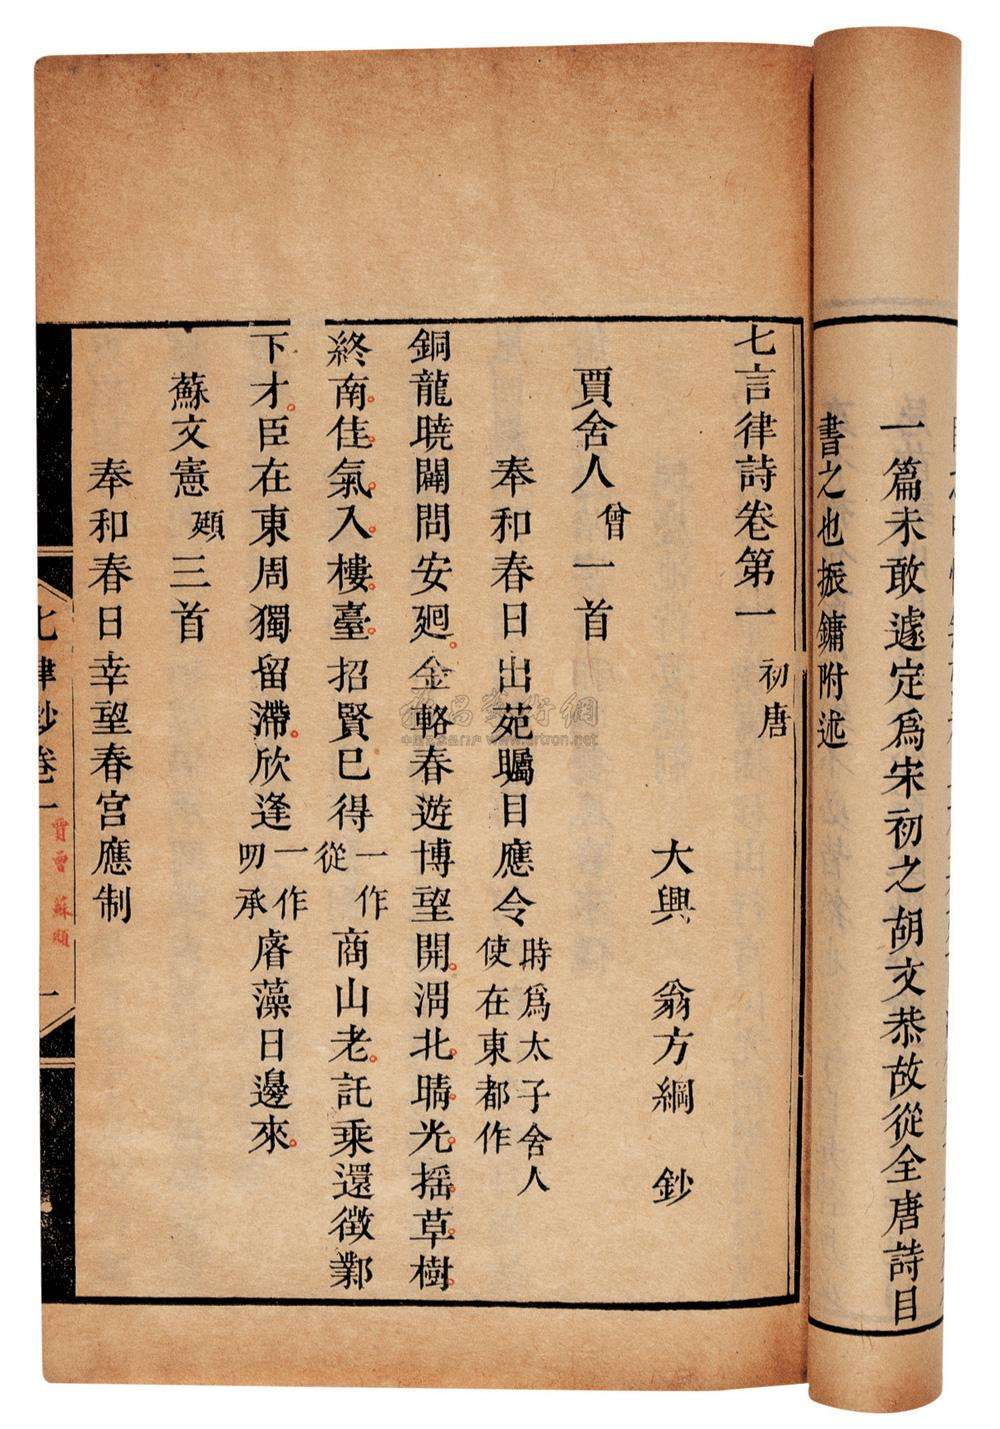 一篇未敢遽定爲宋初之胡文恭故從全唐詩目
書之也振鏞附述
七言律詩卷第一 初唐
大興 翁方綱 鈔
賈舍人 曾 一首
奉和春日出苑矚目應令 時爲太子舍人使在東都作
銅龍曉闢問安迴金輅春遊博望開渭北晴光搖草樹
終南佳氣入樓臺招賢已得 一作從 商山老託乘還徵鄴
下才臣在東周獨留滯欣逢 一作叨承 睿藻日邊來
蘇文憲 頲 三首
奉和春日幸望春宮應制
七律鈔卷一 賈曾 蘇頲 一